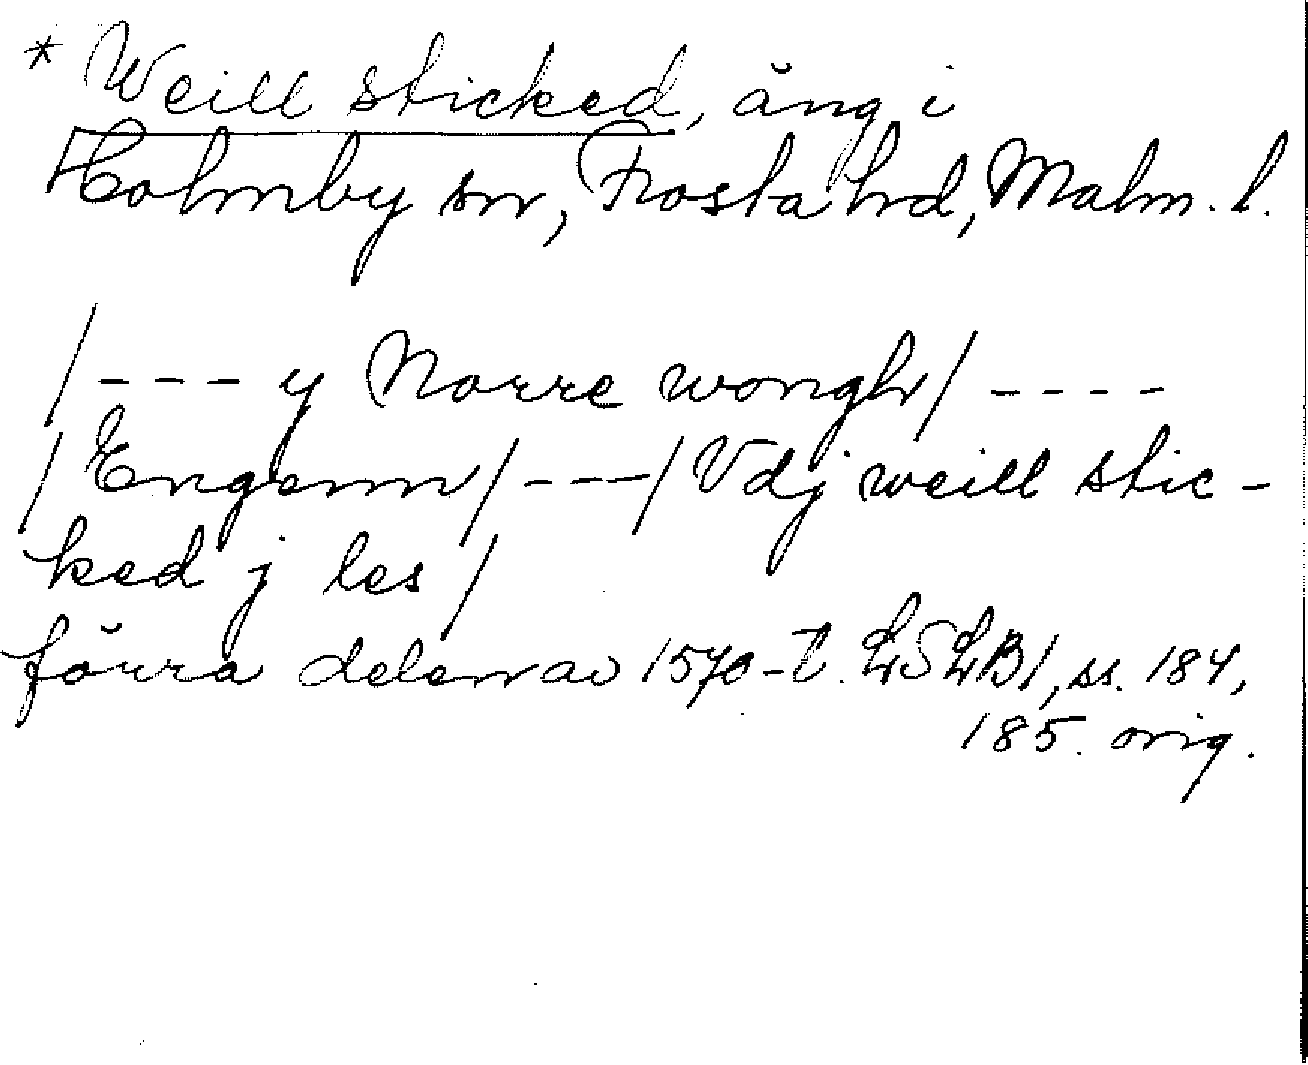 * Weill sticked, äng i
Holmby sn, Frosta hrd, Malm. l.
/--- y Norre wongh/ ----
/Engenn/---/Vdj weill stic-
ked j les/
förra delen av 1570-t. LSLB1, ss. 184,
185. orig.